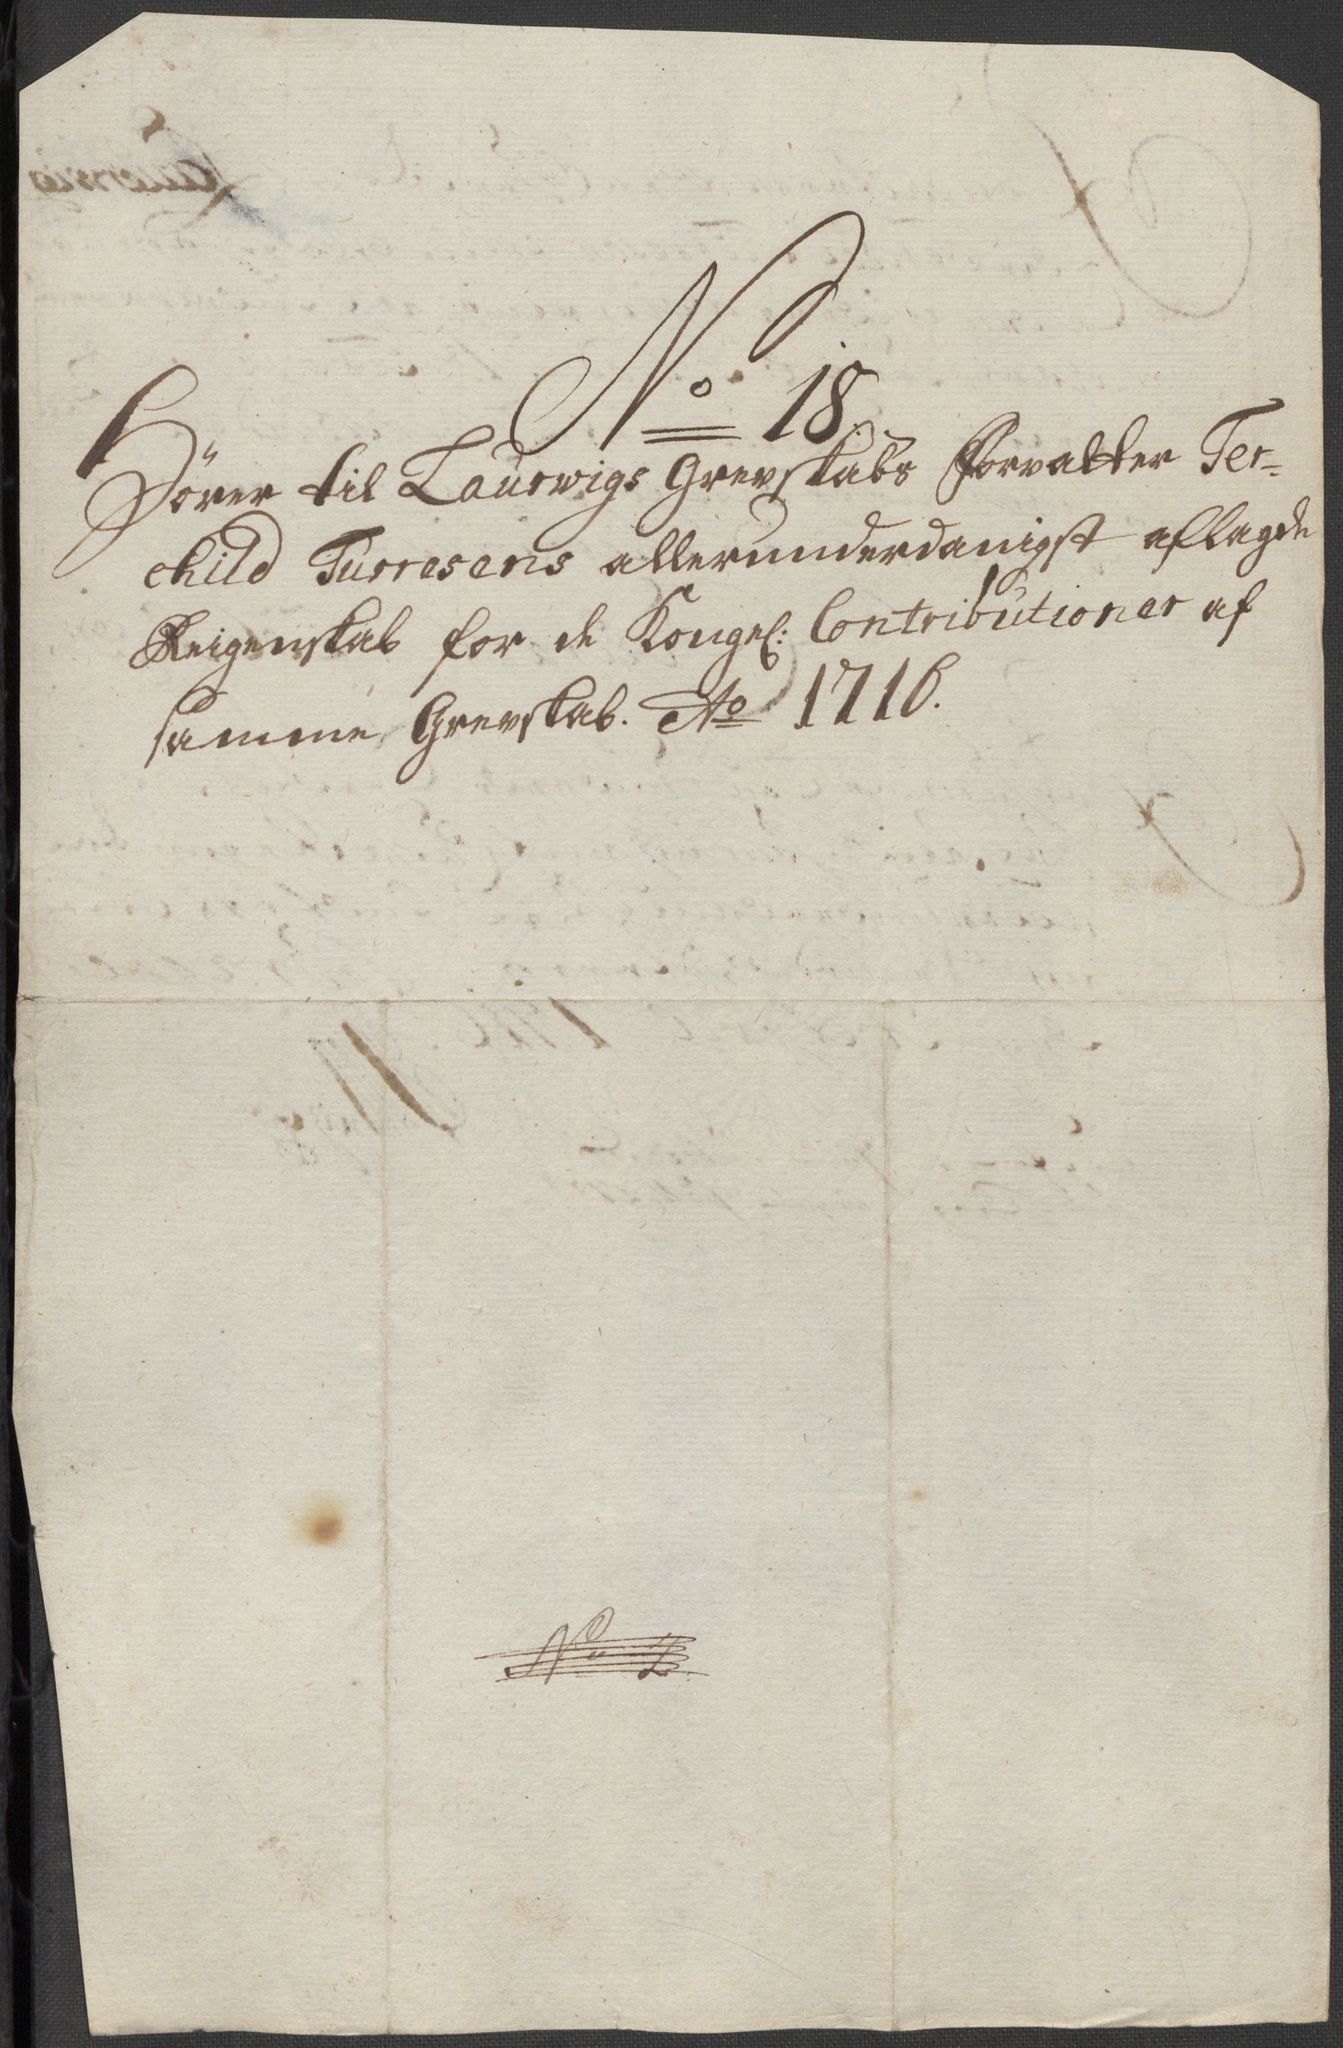 No 18
Hörer til Laurwigs Grevskabs Forvalter Ter-
child Turresens allerunderdanigst aflagde
Reigenskab for de Kongel: Contributioner af
samme Grevskab. Ao 1716.
No 2